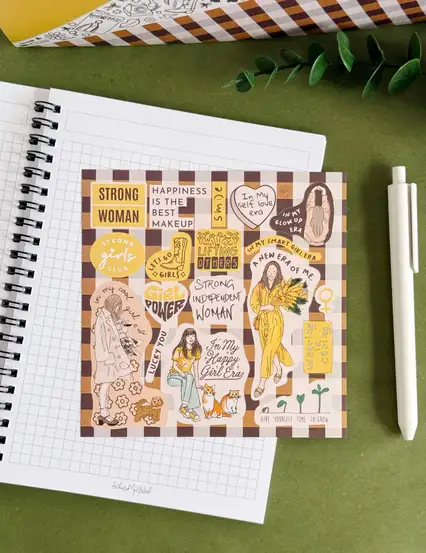 STRONG
WOMAN
HAPPINESS
IS THE
BEST
MAKEUP
smile
In my
self love
era
IN MY
GLOW UP
ERA
STRONG
girls
CLUB
LET'S GO
GIRLS
LIFTING
OTHERS
IN MY SMART GIRL ERA
A NEW ERA OF ME
GIRL
POWER
STRONG
INDEPENDENT
WOMAN
LUCKY YOU
In My
Happy
Girl Era
in my cool girl era
GIVE YOURSELF TIME TO GROW